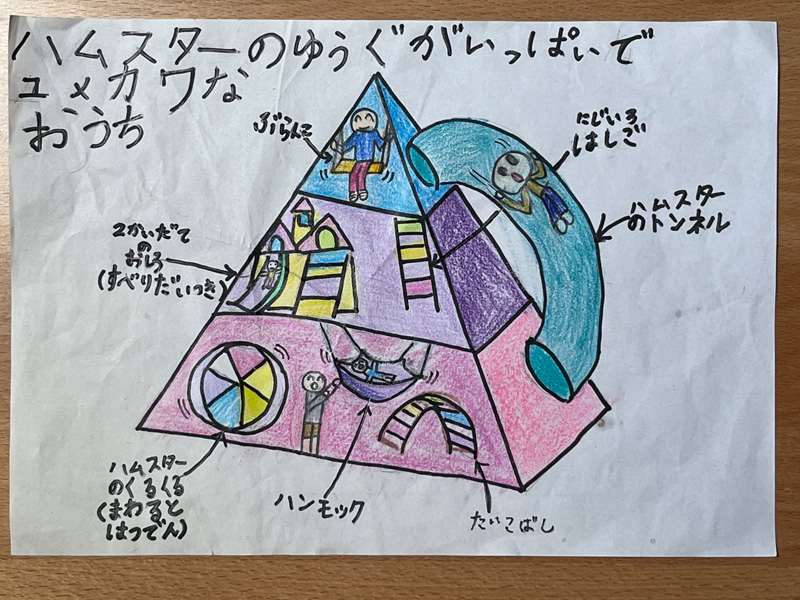 ハムスターのゆうぐがいっぱいで
ユメカワな
おうち
ぶらんこ
にじいろ
はしご
ハムスター
のトンネル
2かいだて
の
おしろ
(すべりだいつき)
ハムスター
のくるくる
(まわると
はつでん)
ハンモック
たいこばし